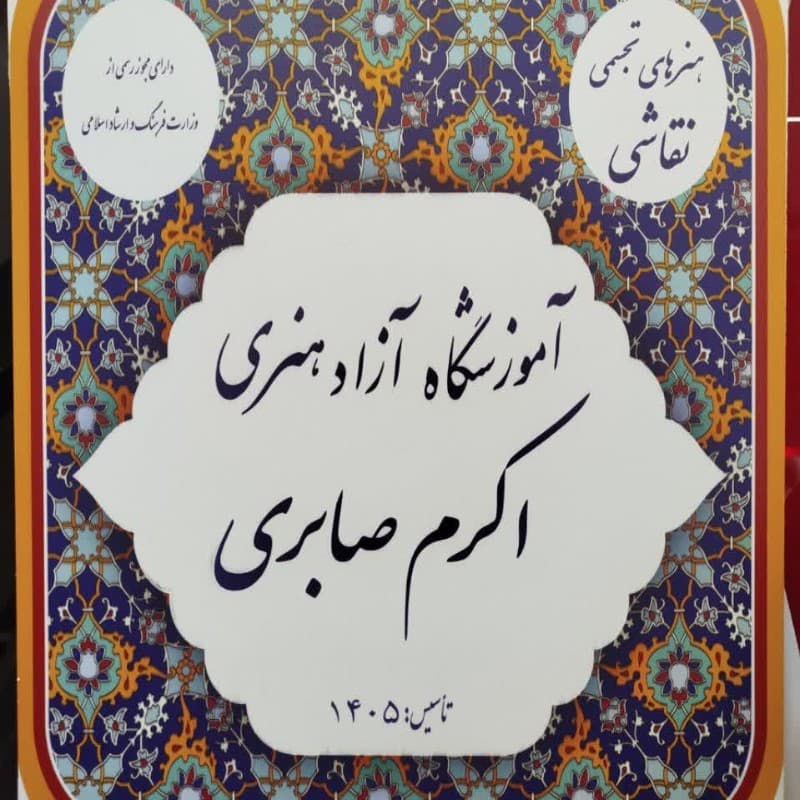 هنرهای تجسمی
نقاشی
دارای مجوز رسمی از
وزارت فرهنگ و ارشاد اسلامی
آموزشگاه آزاد هنری
اکرم صابری
تأسیس: ۱۴۰۵